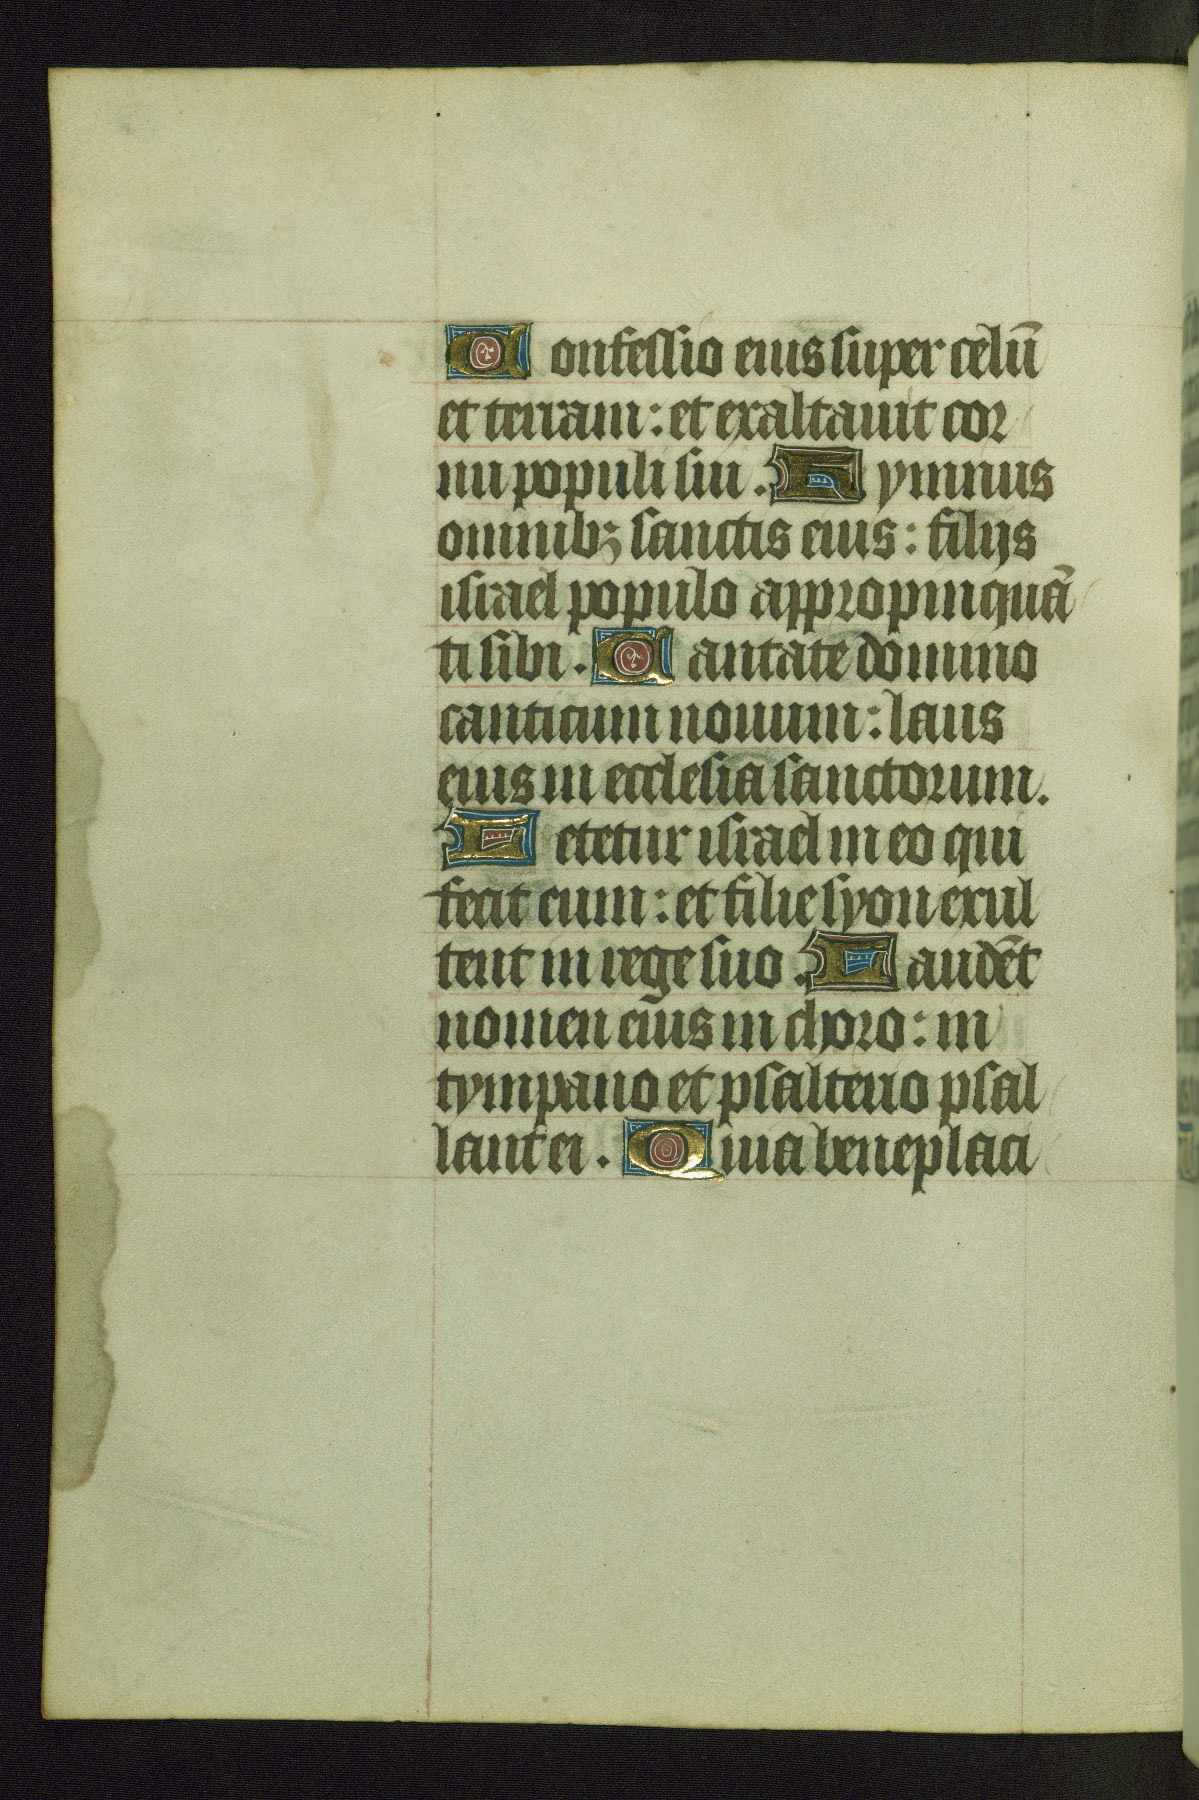 Confessio eius super celū
et terram : et exaltauit cor
nu populi sui . Hymnus
omnibꝫ sanctis eius : filijs
israel populo appropinquā
ti sibi . Cantate domino
canticum nouum : laus
eius in ecclesia sanctorum .
Letetur israel in eo qui
fecit eum : et filie syon exul
tent in rege suo . Laudēt
nomen eius in choro : in
tympano et psalterio psal
lant ei . Quia beneplaci